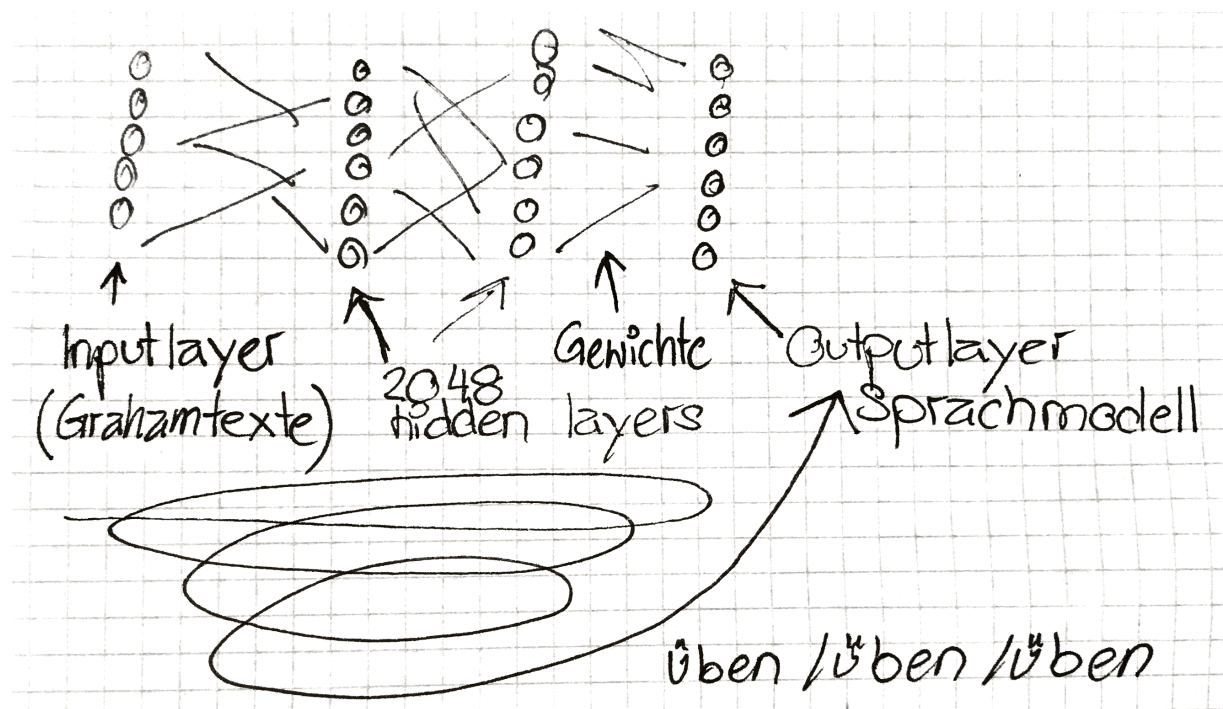 Inputlayer
(Grahamtexte)
2048
hidden layers
Gewichte
Outputlayer
Sprachmodell
üben / üben / üben